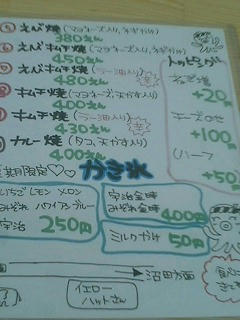 ⑤ えび焼(マヨネーズ入り、ネギかけ)
380えん
⑥ えびキムチ焼(マヨネーズ入り、ネギかけ)
450えん
えびキムチ焼(ラー油入り)
480えん
キムチ焼(マヨネーズ、天かす入り)
400えん
キムチ焼(ラー油入り)
430えん
カレー焼(タコ、天かす入り)
400えん
トッピング
ねぎ
+20円
チーズのせ
+100円
(ハーフ
+50円
期限定♡♡ かき氷
いちご レモン メロン
みぞれ ハワイアンブルー
宇治 250円
宇治金時
みぞれ金時 400円
ミルクかけ 50円
沼田方面
イエロー
ハットさん